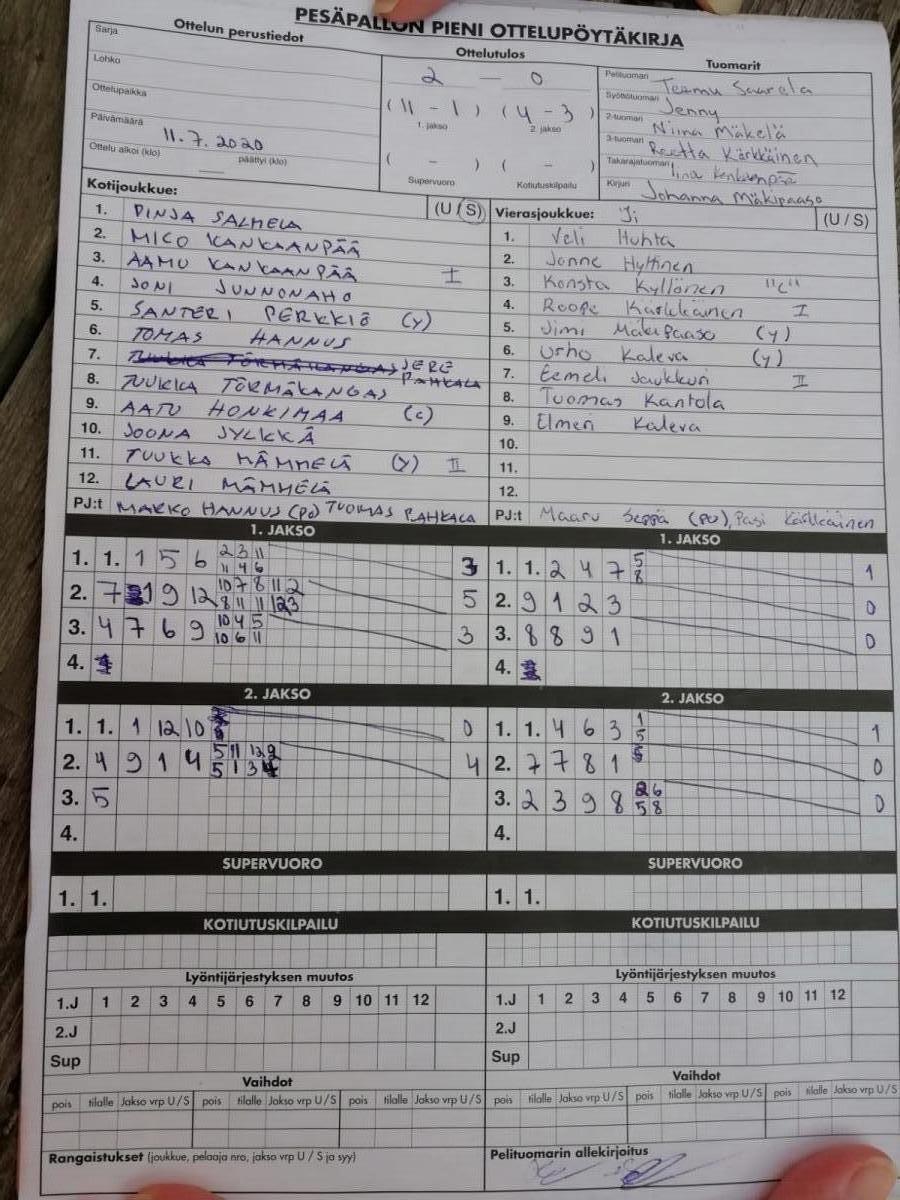 PESÄPALLON PIENI OTTELUPÖYTÄKIRJA
Ottelun perustiedot
Sarja
Lohko
Ottelupaikka
Päivämäärä 11.7.2020
Ottelu alkoi (klo) päättyi (klo)
Ottelutulos
2 - 0
(11 - 1) (4 - 3)
1. jakso 2. jakso
( - ) ( - )
Supervuoro Kotiutuskilpailu
Tuomarit
Pelituomari Teemu Saarela
Syöttötuomari Jenny
2-tuomari Niina Mäkelä
3-tuomari Reetta Kärkkäinen
Takarajatuomari Iina
Kirjuri Johanna Mäkipaaso
Kotijoukkue: (U / S)
1. PINJA SALMELA
2. MICO KANKAANPÄÄ
3. AAMU KANKAANPÄÄ I
4. JONI JUNNONAHO
5. SANTERI PERKKIÖ (y)
6. TOMAS HANNUS
7. JERE PAHKALA
8. TUUKKA TÖRMÄKANGAS
9. AATU HONKIMAA (c)
10. JOONA JYLKKÄ
11. TUUKKA MÄMMELÄ (y) II
12. LAURI MÄMMELÄ
PJ:t MARKO HANNUS (PO) TUOMAS PAHKALA
Vierasjoukkue: Ii (U / S)
1. Veli Huhta
2. Jonne Hyttinen
3. Konsta Kyllönen "C"
4. Roope Kärkkäinen I
5. Jimi Mäkipaaso (y)
6. Urho Kaleva (y)
7. Eemeli Jaukkuri II
8. Tuomas Kantola
9. Elmeri Kaleva
10.
11.
12.
PJ:t Maaru Seppä (PU), Pasi Kärkkäinen
1. JAKSO
1. 1. 1 5 6 2 3 11 3
11 4 6
2. 7 1 9 12 10 7 8 11 2 5
8 11 11 12 3
3. 4 7 6 9 10 4 5 3
10 6 11
4.
1. JAKSO
1. 1. 2 4 7 5 1
8
2. 9 1 2 3 0
3. 8 8 9 1 0
4.
2. JAKSO
1. 1. 1 12 10 0
2. 4 9 1 4 5 11 12 2 4
5 1 3 4
3. 5
4.
2. JAKSO
1. 1. 4 6 3 1 1
5
2. 7 7 8 1 5 0
3. 2 3 9 8 2 6 0
5 8
4.
SUPERVUORO
1. 1.
SUPERVUORO
1. 1.
KOTIUTUSKILPAILU
KOTIUTUSKILPAILU
Lyöntijärjestyksen muutos
1.J 1 2 3 4 5 6 7 8 9 10 11 12
2.J
Sup
Lyöntijärjestyksen muutos
1.J 1 2 3 4 5 6 7 8 9 10 11 12
2.J
Sup
Vaihdot
pois tilalle Jakso vrp U / S pois tilalle Jakso vrp U / S pois tilalle Jakso vrp U / S
Vaihdot
pois tilalle Jakso vrp U / S pois tilalle Jakso vrp U / S pois tilalle Jakso vrp U / S
Rangaistukset (joukkue, pelaaja nro, jakso vrp U / S ja syy)
Pelituomarin allekirjoitus